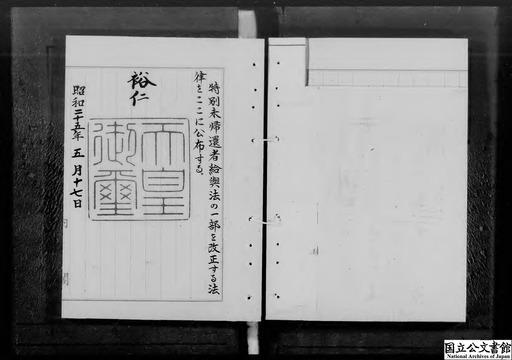 特別未帰還者給與法の一部を改正する法
律をここに公布する。
裕仁
天皇
御璽
昭和二十五年五月十七日
国立公文書館
National Archives of Japan